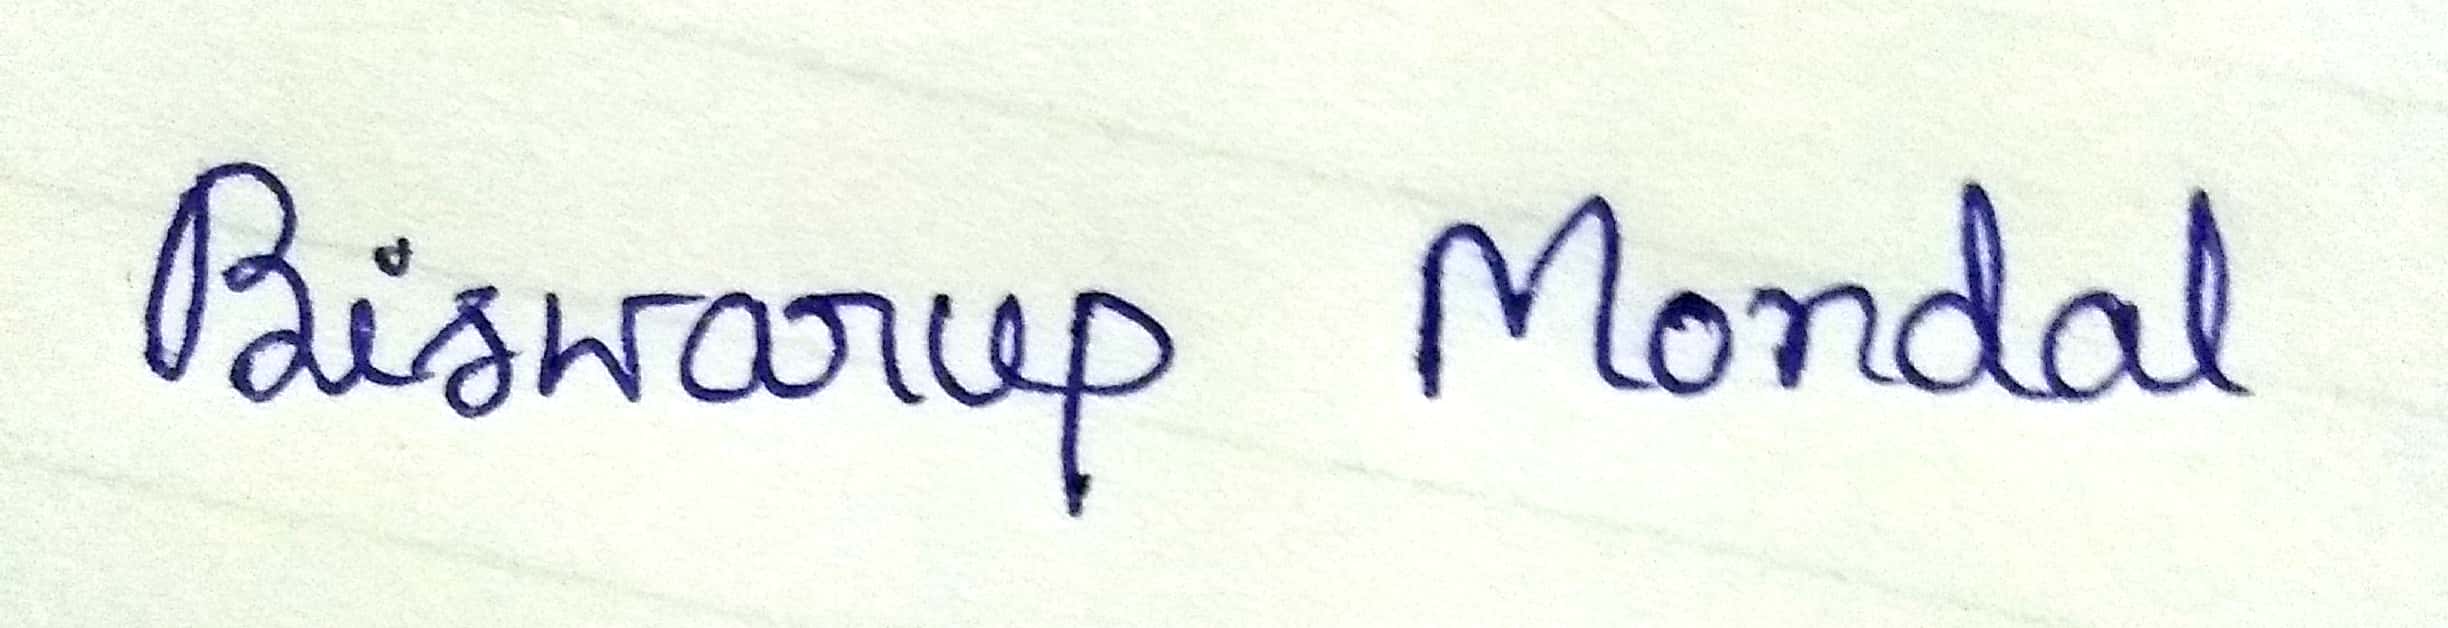 Biswarup Mondal